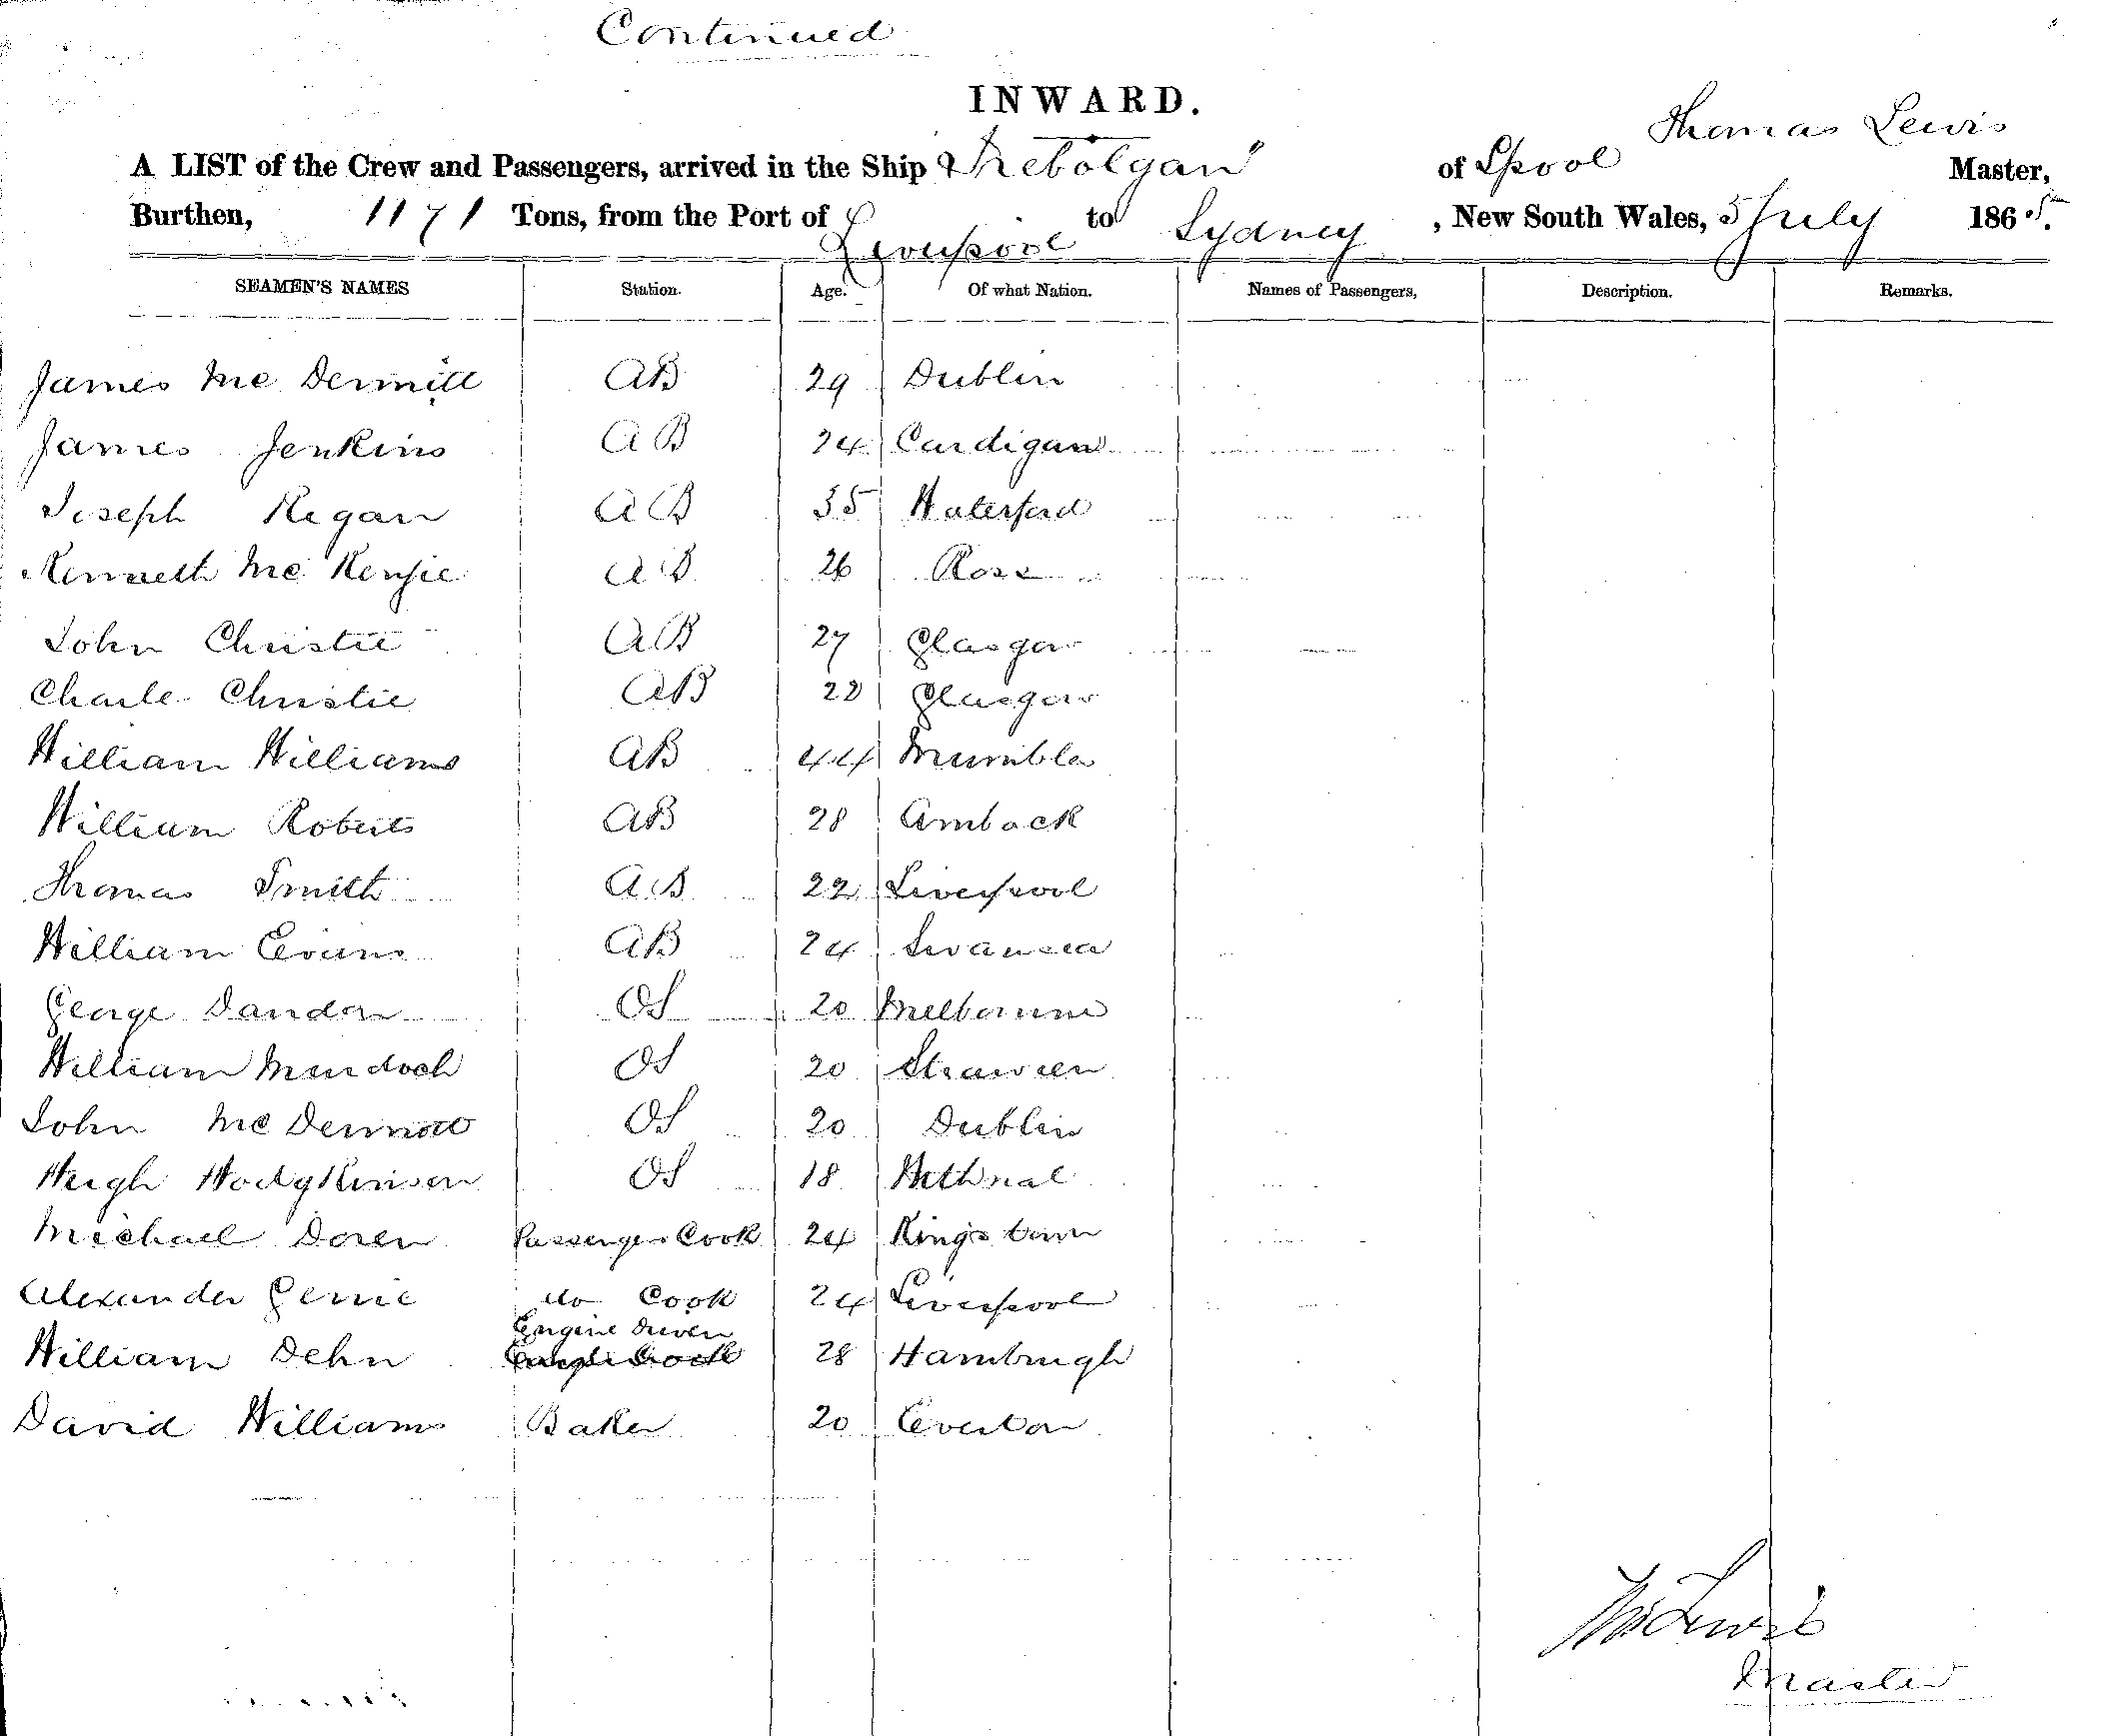 Continued
INWARD.
Thomas Lewis
A LIST of the Crew and Passengers, arrived in the Ship "Trebolgan" of Lpool Master,
Burthen, 1171 Tons, from the Port of Liverpool to Sydney, New South Wales, 5 July 1865.
SEAMEN'S NAMES Station. Age. Of what Nation. Names of Passengers, Description. Remarks.
James Mc Dermitt AB 29 Dublin
James Jenkins AB 24 Cardigan
Joseph Regan AB 35 Waterford
Kenneth Mc Kenzie AB 26 Ross
John Christie AB 27 Glasgow
Charle Christie AB 22 Glasgow
William Williams AB 44 Mumbles
William Roberts AB 28 Amback
Thomas Smith AB 22 Liverpool
William Evans AB 24 Swansea
George Dandon OS 20 Melbourne
William Murdoch OS 20
John Mc Dermott OS 20 Dublin
Hugh Hodgkinson OS 18
Michael Doren Passengers Cook 24 Kingstown
Alexander do Cook 24 Liverpool
Engine Driver
William Dehn 28 Hambrugh
David Williams Baker 20 Everton
Thos Lewis
Master